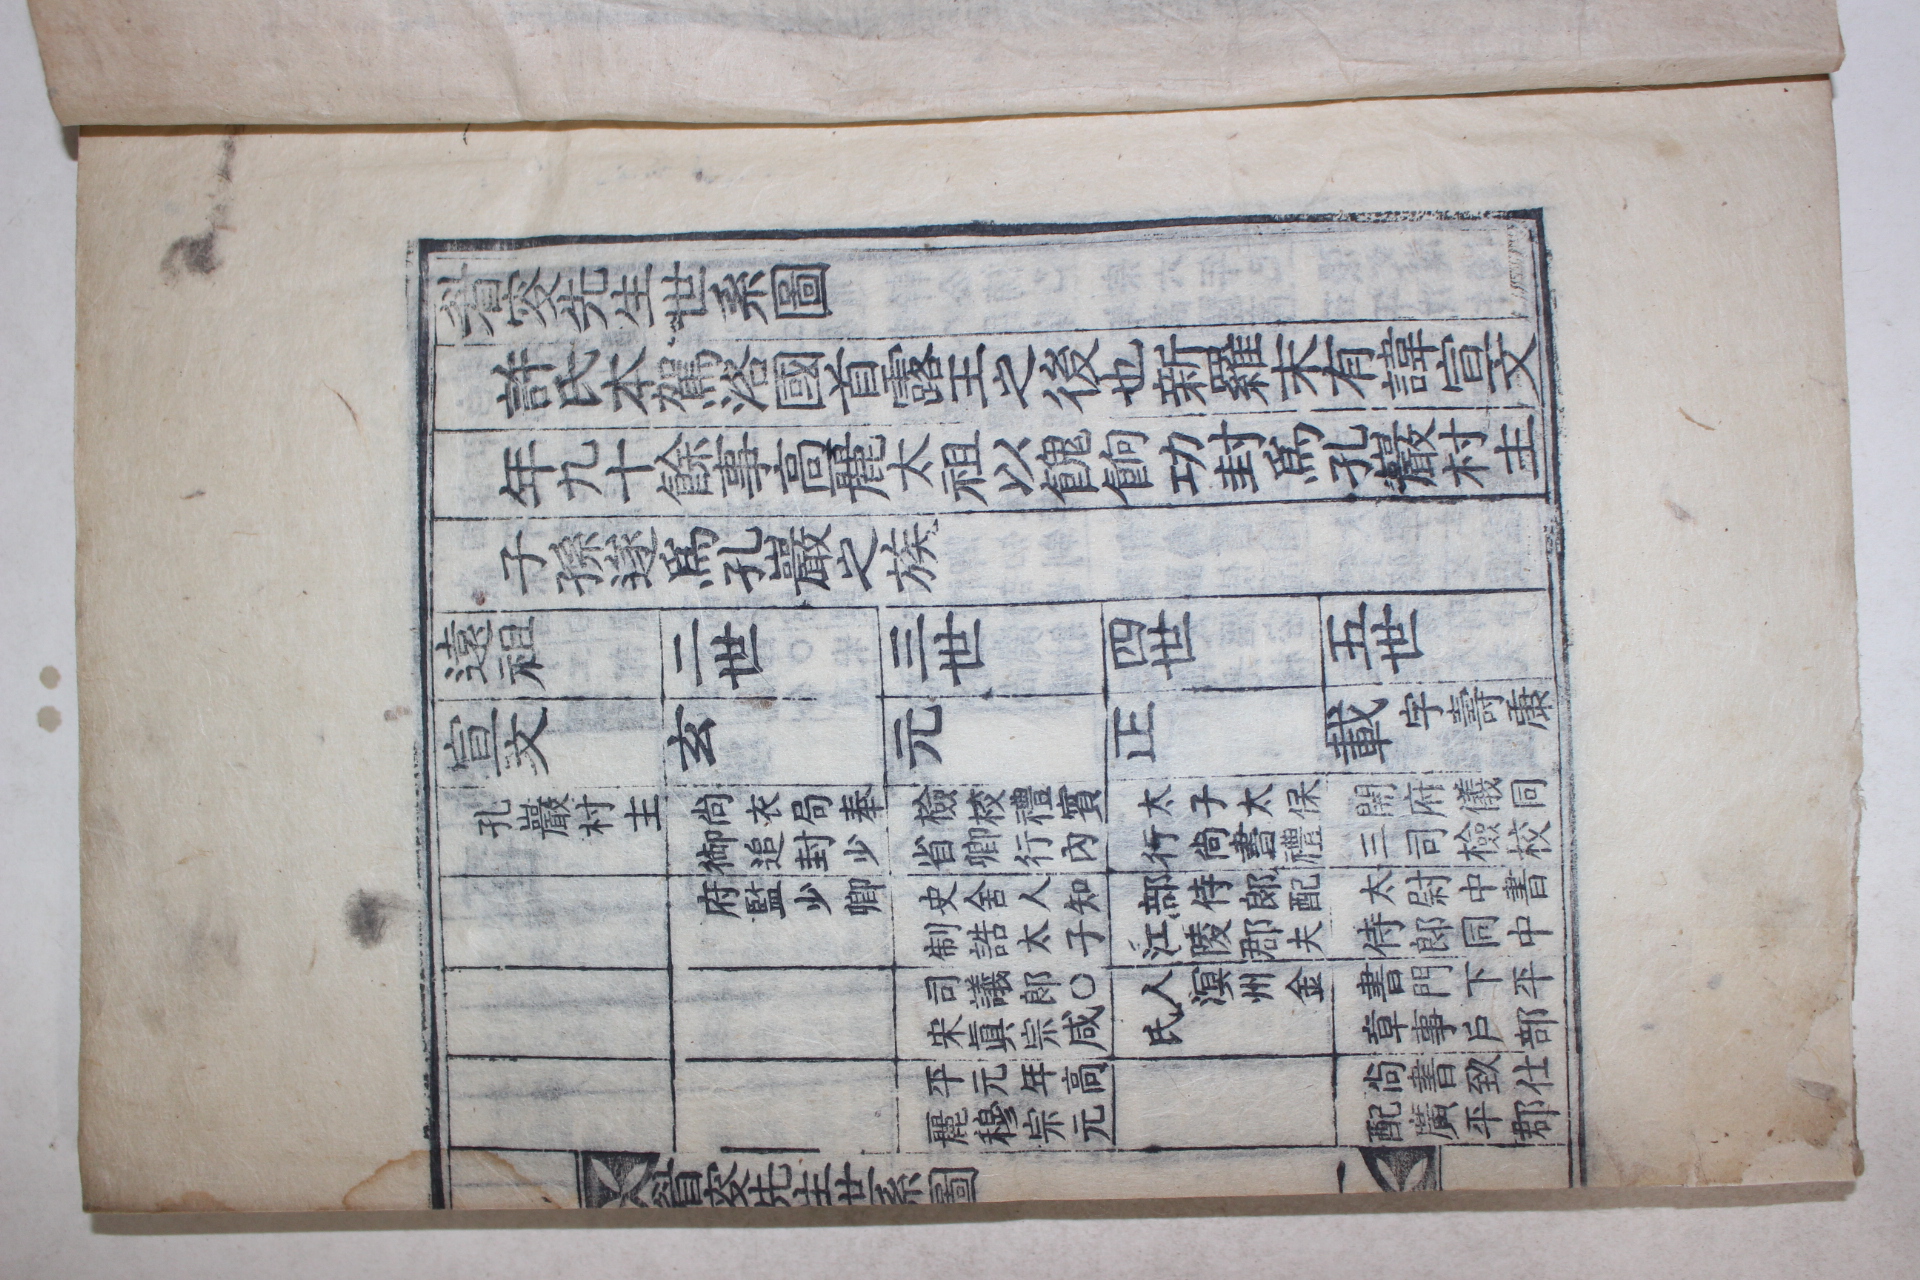 眉叟先生世系圖
許氏本駕洛國首露王之後也新羅末有諱宣文
年九十餘事高麗太祖以餽餉功封爲孔巖村主
子孫遂爲孔巖之族
遠祖 二世 三世 四世 五世
宣文 玄 元 正 載字壽康
孔巖村主 尚衣局奉 檢校禮賓 太子太保 開府儀同
御追封少 省卿行內 行尚書禮 三司檢校
府監少卿 史舍人知 部侍郎配 太尉中書
制誥太子 江陵郡夫 侍郎同中
司議郎○ 人溟州金 書門下平
宋眞宗咸 氏 章事戶部
平元年高 尚書致仕
麗穆宗元 配廣平郡
眉叟先生世系圖 一